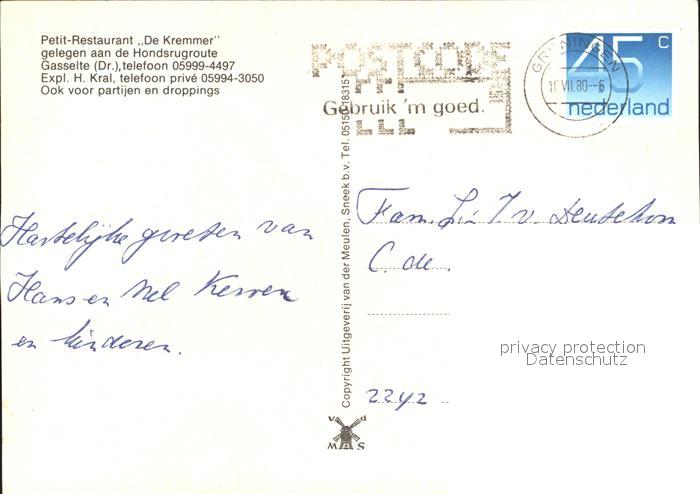 Petit-Restaurant „De Kremmer"
gelegen aan de Hondsrugroute
Gasselte (Dr.), telefoon 05999-4497
Expl. H. Kral, telefoon privé 05994-3050
Ook voor partijen en droppings
POSTCODE
Gebruik 'm goed.
GRONINGEN
VII.80
45 C
nederland
Hartelijke groeten van
Hans en Nel
en kinderen.
Copyright Uitgeverij van der Meulen, Sneek b.v. Tel. 05150-18315
Fam.
C. de
2242
privacy protection
Datenschutz
v d
MAS